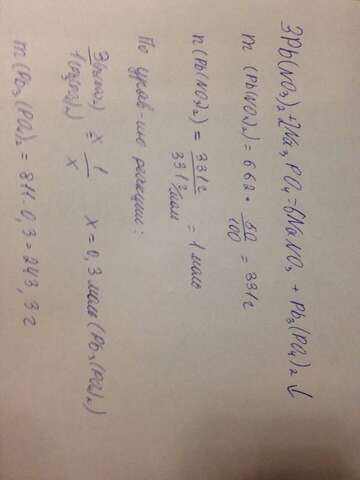 3Pb(NO₃)₂+2Na₃PO₄=6NaNO₃ + Pb₃(PO₄)₂↓
m (Pb(NO₃)₂) = 662 · 50/100 = 331г
n (Pb(NO₃)₂) = 331г / 331г/моль = 1 моль
По урав-ию реакции:
= 1/x x = 0,3 моль (Pb₃(PO₄)₂)
m (Pb₃(PO₄)₂ = 811 · 0,3 = 243,3 г